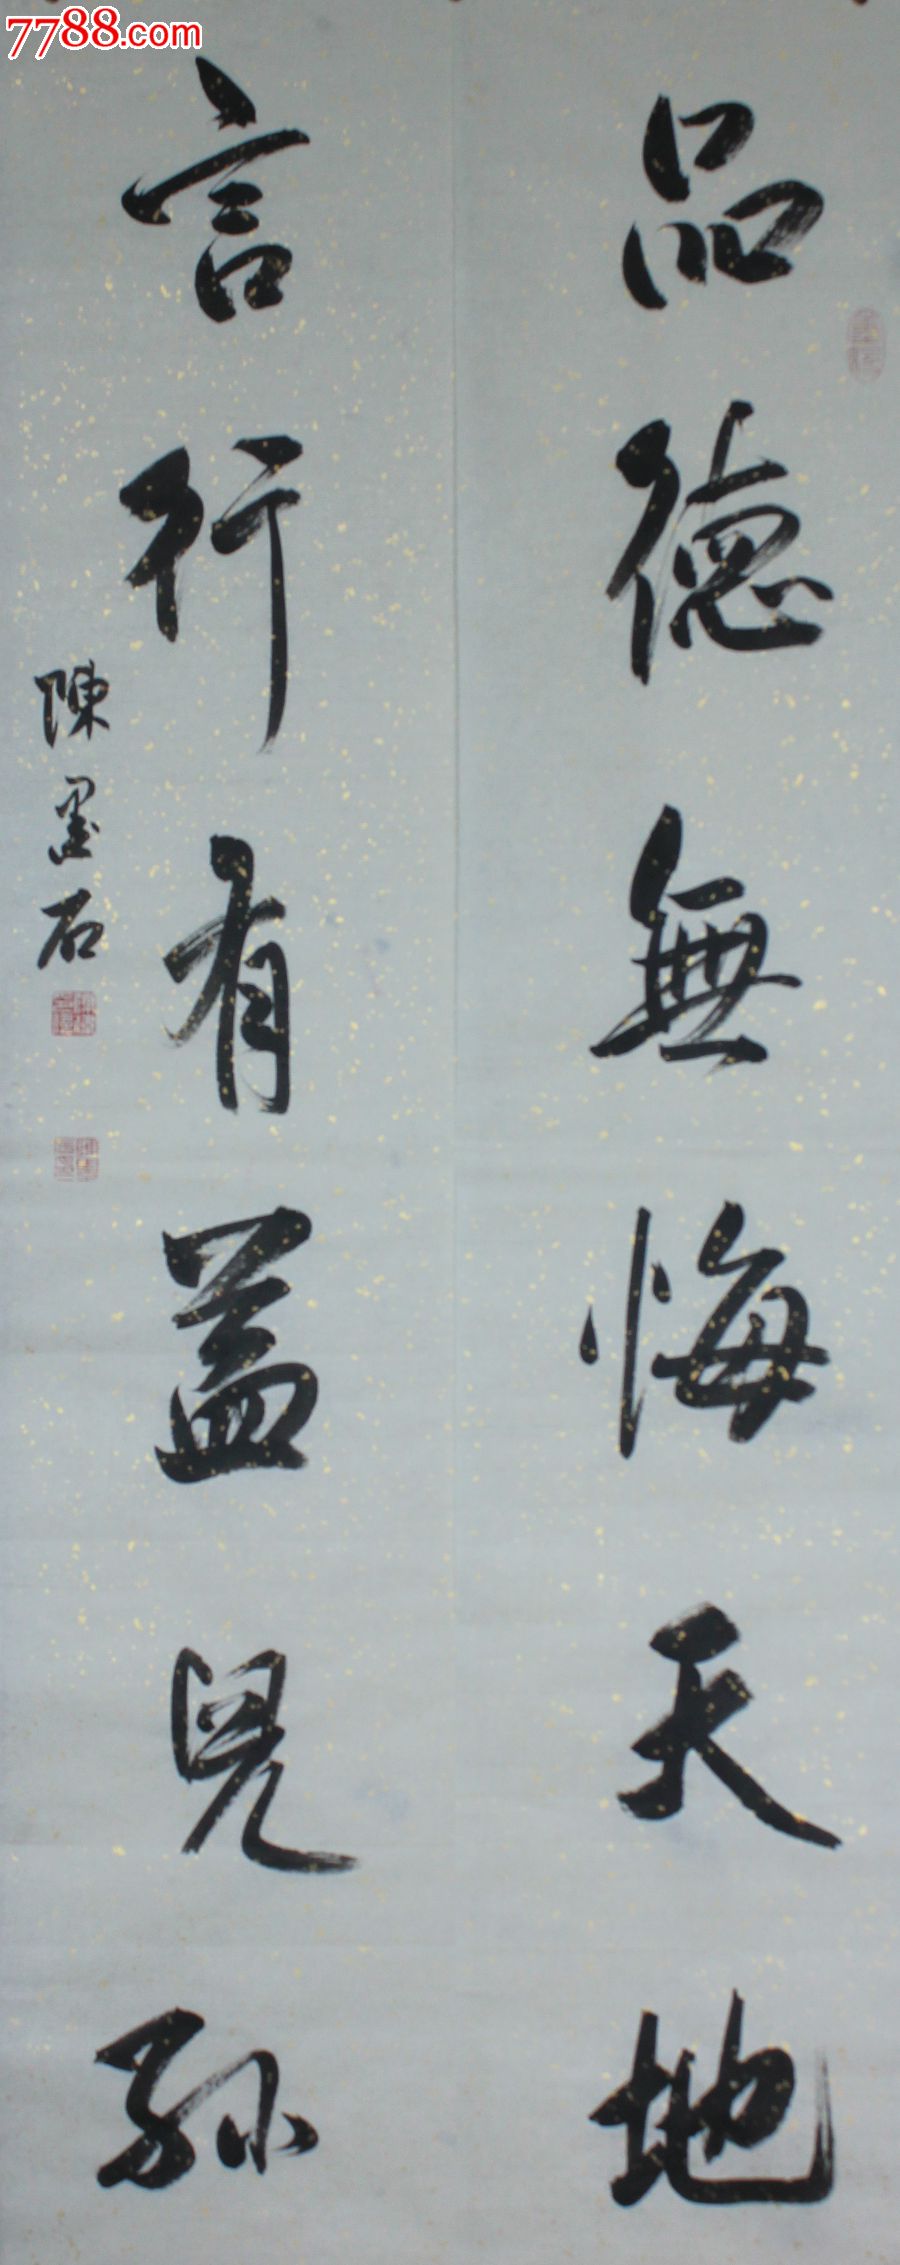 7788.com
品德無悔天地
言行有益兒孫
陳墨石